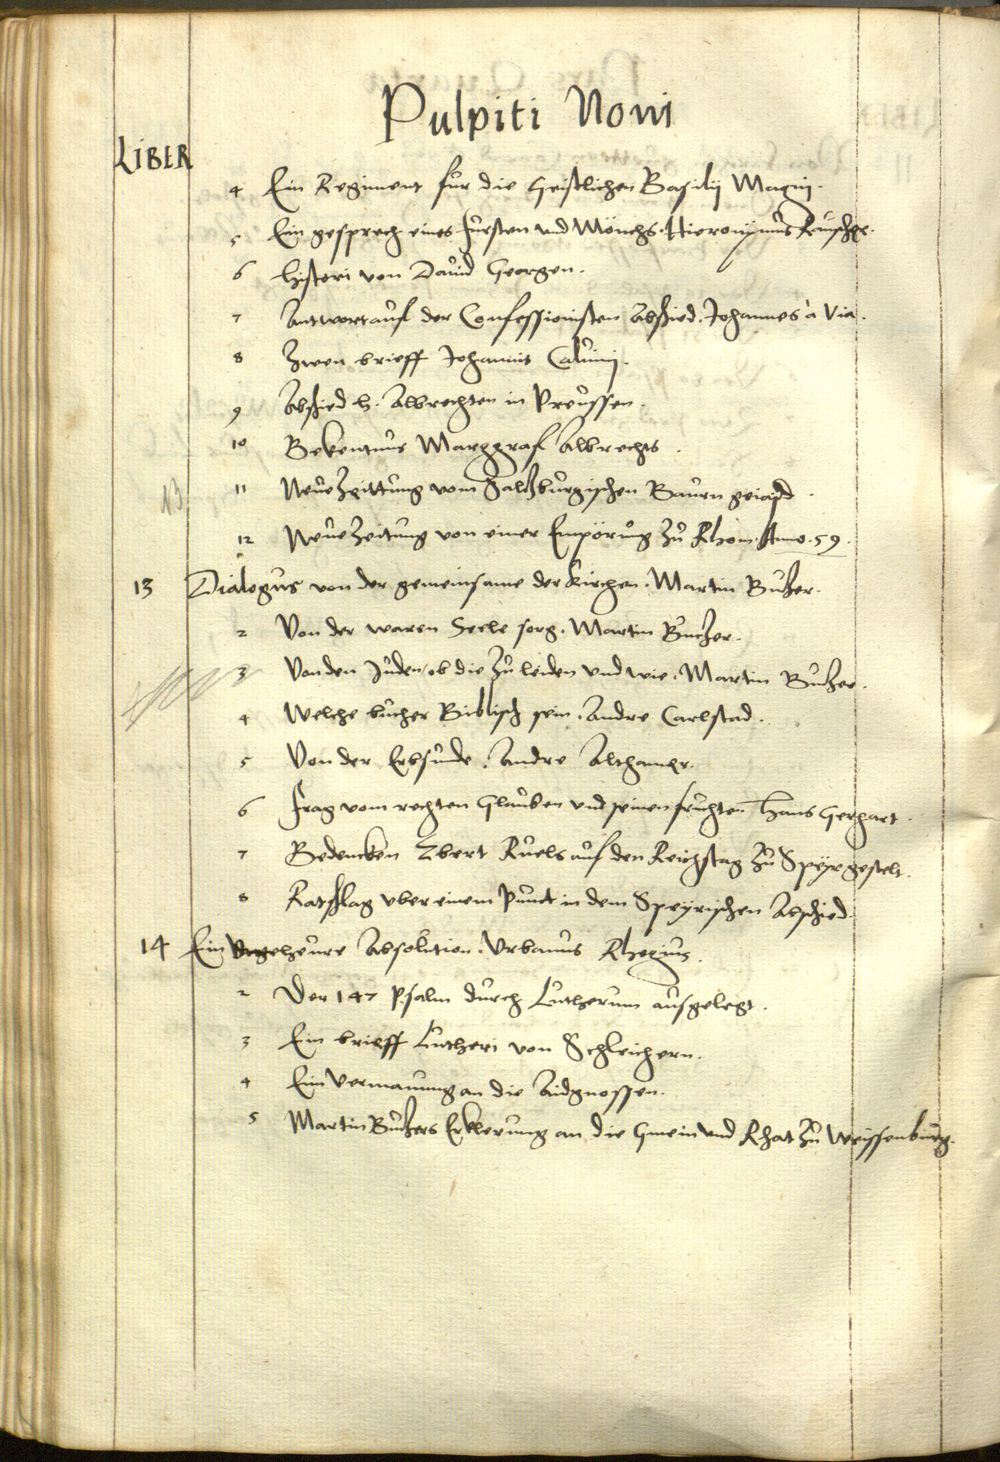 Pulpiti Noni
LIBER
4 Ein Regiment fur die Geistlichen Basilij Magni.
5 Ein gesprech eines fursten und Mönchs. Hieronÿmus
6 Histori von Dauid Georgen.
7 Antwort auf der Confessionisten Abschied. Johannes à Via.
8 Zwen brieff Johannis Caluinj.
9 Abschied h. Albrechten in Preussen.
10 Bekentnus Marggraf Albrechts.
11 Neue Zeittung vom Saltzburgischen Bauren
12 Neue Zeitung von einer Empörung zu Rhom. Anno. 59.
13 Dialogus von der gemeinsame der Kirchen. Martin Butzer.
2 Von der waren Seele sorg. Martin Butzer.
3 Von den Juden, ob die zu leiden und wie. Martin Butzer.
4 Welche bucher Biblisch sein. Andre Carlstad.
5 Von der Erbsunde. Andre Althamer.
6 Frag vom rechten Glauben und seinen fruchten Hans Gerhart.
7 Bedencken Ruels auf den Reichstag zu Speyr gestelt.
8 Ratschlag uber einem Punct in dem Speyrischen Abschied.
14 Ein Ungeheure Absolution. Urbanus Rhegius.
2 Der 147 Psalm durch Lutherum ausgelegt.
3 Ein brieff Lutheri von Schleichern.
4 Ein Vermanung an die Aidgnossen.
5 Martin Butzers Erklerung an die Gmein und Rhat zu Weissenburg.